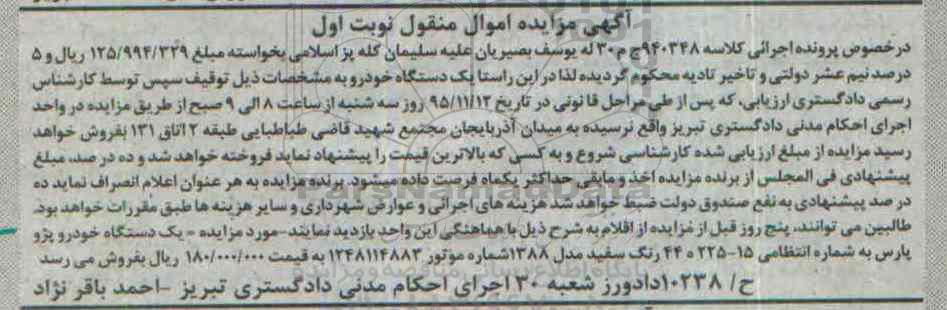 آگهی مزایده اموال منقول نوبت اول
درخصوص پرونده اجرائی کلاسه ۹۴۰۳۴۸ج م۳۰ له یوسف بصیریان علیه سلیمان کله پز اسلامی بخواسته مبلغ ۱۲۵/۹۹۴/۳۲۹ ریال و ۵
درصد نیم عشر دولتی و تاخیر تادیه محکوم گردیده لذا در این راستا یک دستگاه خودرو به مشخصات ذیل توقیف سپس توسط کارشناس
رسمی دادگستری ارزیابی، که پس از طی مراحل قانونی در تاریخ ۹۵/۱۱/۱۲ روز سه شنبه از ساعت ۸ الی ۹ صبح از طریق مزایده در واحد
اجرای احکام مدنی دادگستری تبریز واقع نرسیده به میدان آذربایجان مجتمع شهید قاضی طباطبایی طبقه ۲ اتاق ۱۳۱ بفروش خواهد
رسید مزایده از مبلغ ارزیابی شده کارشناسی شروع و به کسی که بالاترین قیمت را پیشنهاد نماید فروخته خواهد شد و ده در صد، مبلغ
پیشنهادی فی المجلس از برنده مزایده اخذ و مابقی حداکثر یکماه فرصت داده میشود. برنده مزایده به هر عنوان اعلام انصراف نماید ده
در صد پیشنهادی به نفع صندوق دولت ضبط خواهد شد هزینه های اجرائی و عوارض شهرداری و سایر هزینه ها طبق مقررات خواهد بود.
طالبین می توانند، پنج روز قبل از مزایده از اقلام به شرح ذیل با هماهنگی این واحد بازدید نمایند-مورد مزایده = یک دستگاه خودرو پژو
پارس به شماره انتظامی ۱۵-۲۲۵ ه ۴۴ رنگ سفید مدل ۱۳۸۸شماره موتور ۱۲۴۸۱۱۴۸۸۲ به قیمت ۱۸۰/۰۰۰/۰۰۰ ریال بفروش می رسد
ح/ ۱۰۲۳۸دادورز شعبه ۳۰ اجرای احکام مدنی دادگستری تبریز -احمد باقر نژاد